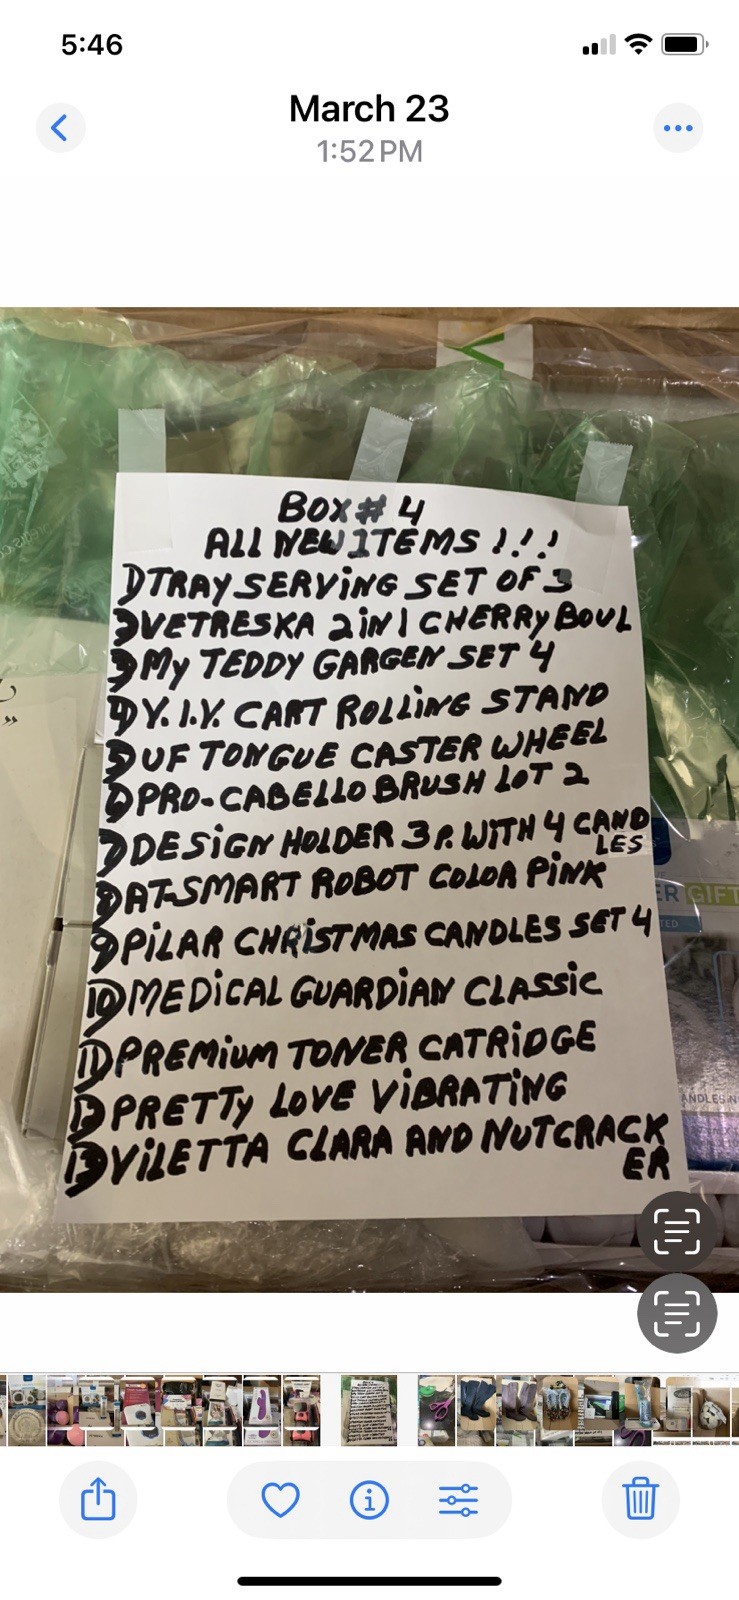 5:46
March 23
1:52 PM
BOX # 4
ALL NEW ITEMS !!!
1) TRAY SERVING SET OF 3
2) VETRESKA 2 IN 1 CHERRY BOUL
3) MY TEDDY GARGEN SET 4
4) Y.I.Y. CART ROLLING STAND
5) UF TONGUE CASTER WHEEL
6) PRO-CABELLO BRUSH LOT 2
7) DESIGN HOLDER 3 P. WITH 4 CAND
LES
8) AT-SMART ROBOT COLOR PINK
9) PILAR CHRISTMAS CANDLES SET 4
10) MEDICAL GUARDIAN CLASSIC
11) PREMIUM TONER CATRIDGE
12) PRETTY LOVE VIBRATING
13) VILETTA CLARA AND NUTCRACK
ER
GIFT